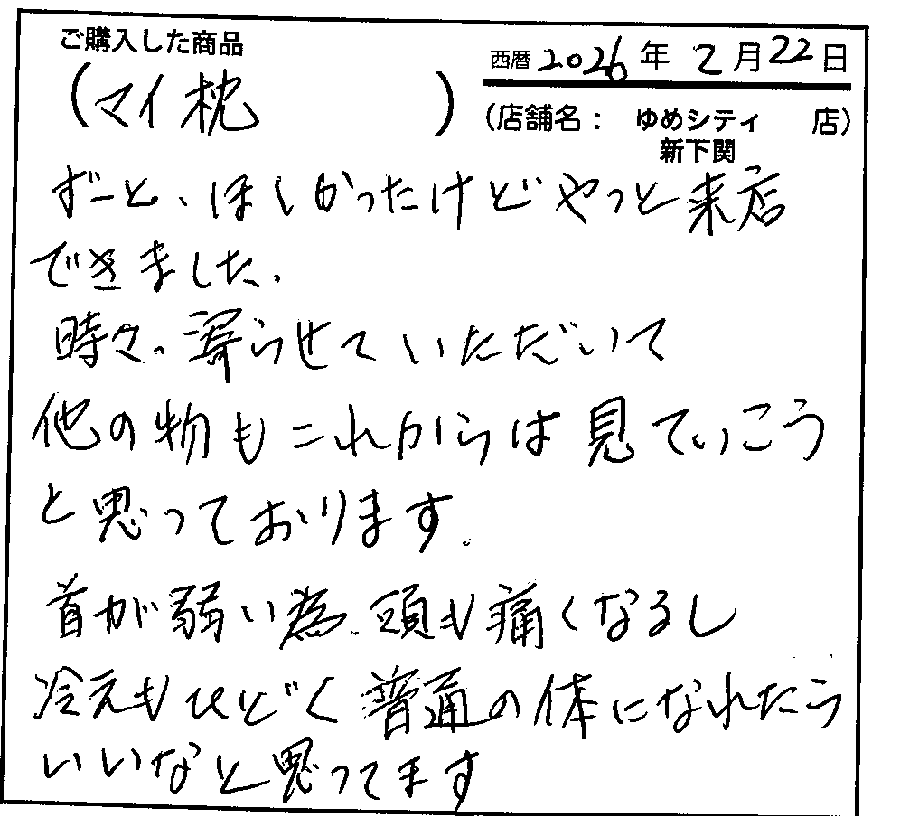 ご購入した商品
西暦 2026 年 2 月 22 日
(マイ枕 )
(店舗名： ゆめシティ 店)
新下関
ずーと、ほしかったけどやっと来店
できました。
時々、寄らせていただいて
他の物もこれからは見ていこう
と思っております。
首が弱い為、頭も痛くなるし
冷えもひどく普通の体になれたら
いいなと思ってます